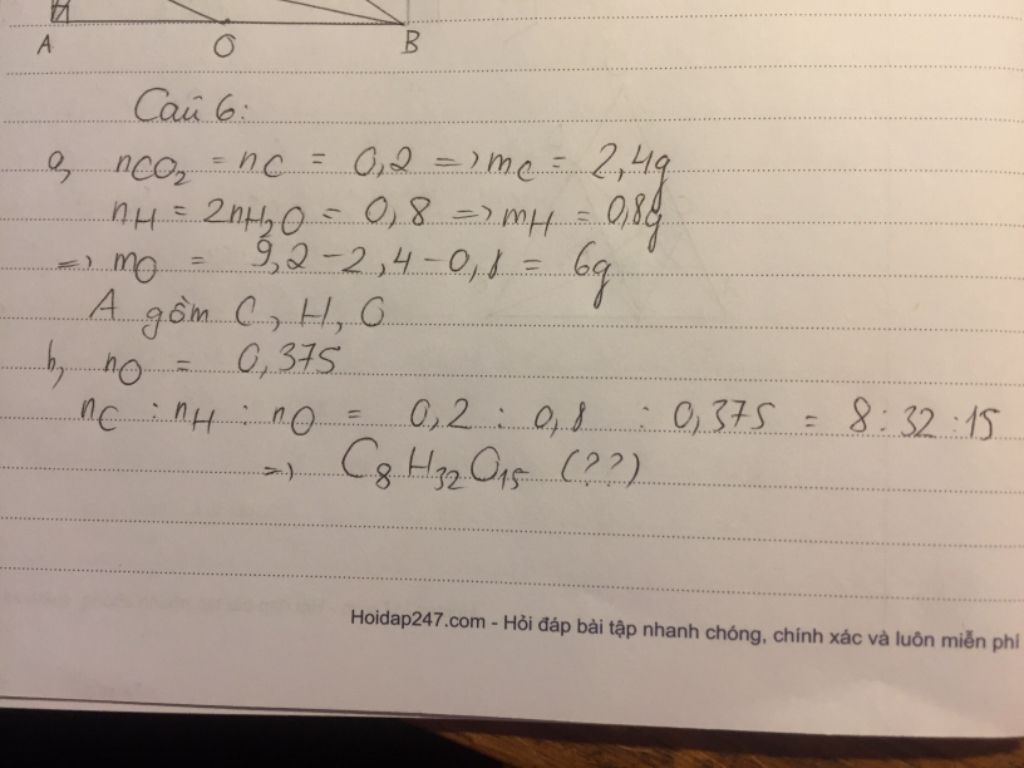 A O B
Câu 6:
a, nCO₂ = nC = 0,2 => mC = 2,4g
nH = 2nH₂O = 0,8 => mH = 0,8g
=> mO = 9,2 - 2,4 - 0,8 = 6g
A gồm C, H, O
b, nO = 0,375
nC : nH : nO = 0,2 : 0,8 : 0,375 = 8:32:15
=> C₈H₃₂O₁₅ (??)
Hoidap247.com - Hỏi đáp bài tập nhanh chóng, chính xác và luôn miễn phí